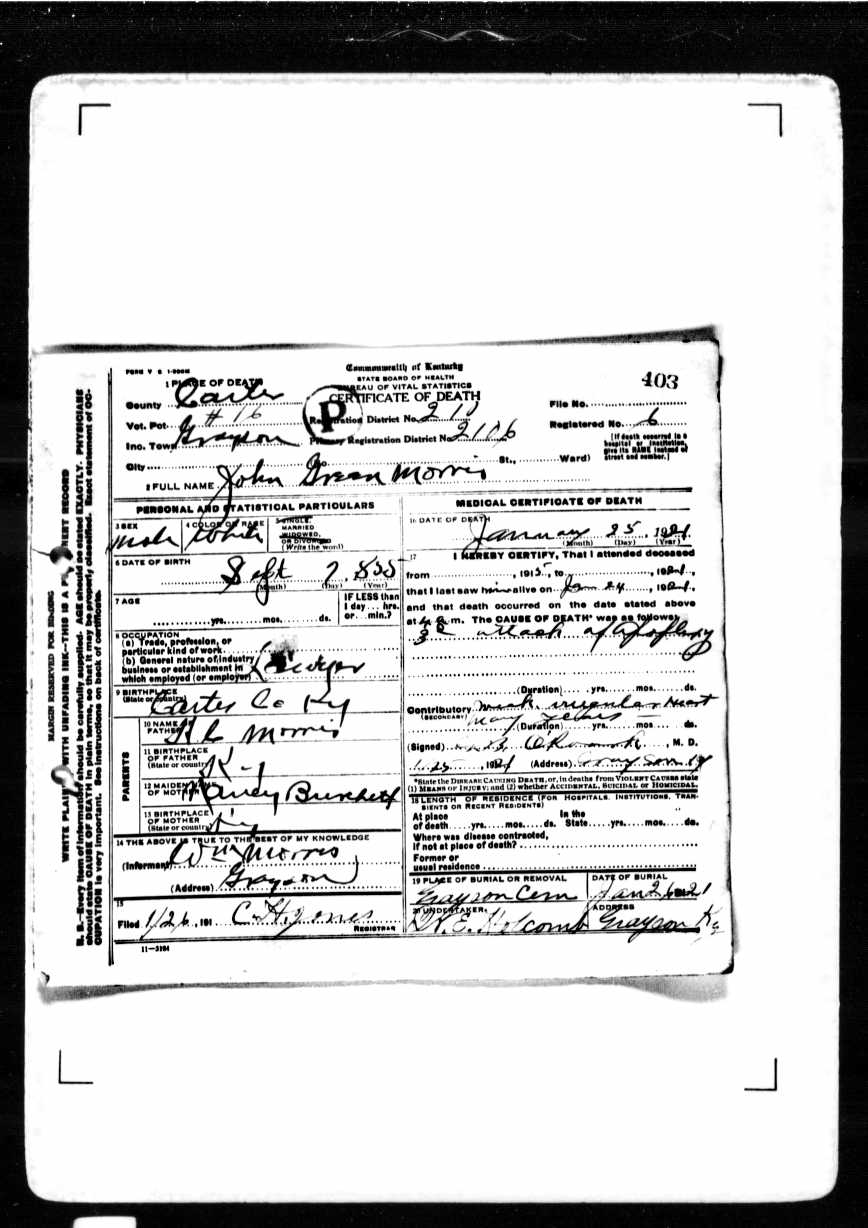 FORM V S 1-200M
Commonwealth of Kentucky
STATE BOARD OF HEALTH
BUREAU OF VITAL STATISTICS
CERTIFICATE OF DEATH
403
1 PLACE OF DEATH
County Carter
Vot. Pct. #16
Inc. Town Grayson
City
P
Registration District No. 210
Primary Registration District No. 2106
File No.
Registered No. 6
[If death occurred in a hospital or institution, give its NAME instead of street and number.]
St., Ward)
2 FULL NAME John Green Morris
PERSONAL AND STATISTICAL PARTICULARS
3 SEX Male
4 COLOR OR RACE White
5 SINGLE, MARRIED WIDOWED, OR DIVORCED (Write the word)
6 DATE OF BIRTH
Sept 7, 855
(Month) (Day) (Year)
7 AGE
yrs. mos. ds.
IF LESS than 1 day... hrs. or... min.?
8 OCCUPATION
(a) Trade, profession, or
particular kind of work
(b) General nature of industry
business or establishment in
which employed (or employer) Lawyer
9 BIRTHPLACE
(State or country) Carter Co Ky
PARENTS
10 NAME OF FATHER Morris
11 BIRTHPLACE
OF FATHER
(State or country) Ky
12 MAIDEN NAME
OF MOTHER Nancy Burchett
13 BIRTHPLACE
OF MOTHER
(State or country) Ky
14 THE ABOVE IS TRUE TO THE BEST OF MY KNOWLEDGE
(Informant) Wm Morris
(Address) Grayson
15
Filed 1/26, 191 C. H. Jones
REGISTRAR
11—3184
MEDICAL CERTIFICATE OF DEATH
16 DATE OF DEATH
January 25, 1921
(Month) (Day) (Year)
17 I HEREBY CERTIFY, That I attended deceased
from , 1915, to , 1921,
that I last saw him alive on Jan 24, 1921,
and that death occurred on the date stated above
at 4 a.m. The CAUSE OF DEATH* was as follows:
3d attack of Apoplexy
(Duration) yrs. mos. ds.
Contributory irregular Heart
(SECONDARY) many years
(Duration) yrs. mos. ds.
(Signed) , M. D.
1-25, 1921 (Address) Grayson Ky
*State the DISEASE CAUSING DEATH, or, in deaths from VIOLENT CAUSES state
(1) MEANS OF INJURY; and (2) whether ACCIDENTAL, SUICIDAL or HOMICIDAL.
18 LENGTH OF RESIDENCE (FOR HOSPITALS, INSTITUTIONS, TRANSIENTS OR RECENT RESIDENTS)
At place of death yrs. mos. ds. In the State yrs. mos. ds.
Where was disease contracted,
if not at place of death?
Former or
usual residence
19 PLACE OF BURIAL OR REMOVAL
Grayson Cem
DATE OF BURIAL
Jan 26 1921
20 UNDERTAKER
E. Holcomb
ADDRESS
Grayson Ky
MARGIN RESERVED FOR BINDING
WRITE PLAINLY WITH UNFADING INK—THIS IS A PERMANENT RECORD
N. B.—Every item of information should be carefully supplied. AGE should be stated EXACTLY. PHYSICIANS
should state CAUSE OF DEATH in plain terms, so that it may be properly classified. Exact statement of OC-
CUPATION is very important. See instructions on back of certificate.